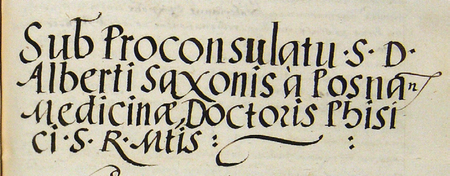 Sub Proconsulatu · S · D ·
Alberti Saxonis à Posnan
Medicinæ Doctoris Phisi
ci · S · R · Mtis :